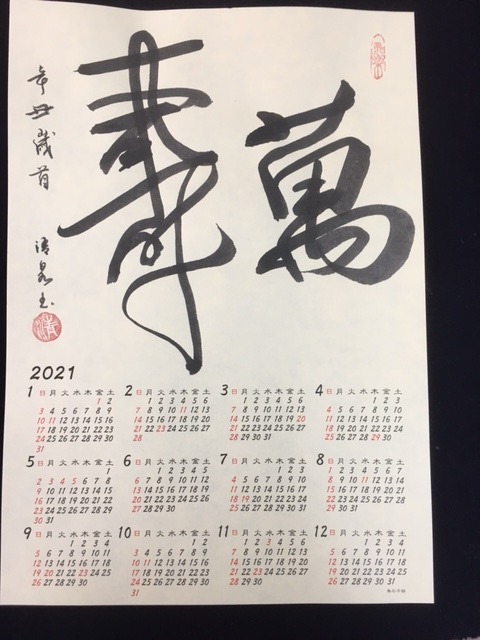 萬壽
辛丑歳首
清泉書
清
2021
1 日 月 火 水 木 金 土
1 2
3 4 5 6 7 8 9
10 11 12 13 14 15 16
17 18 19 20 21 22 23
24 25 26 27 28 29 30
31
2 日 月 火 水 木 金 土
1 2 3 4 5 6
7 8 9 10 11 12 13
14 15 16 17 18 19 20
21 22 23 24 25 26 27
28
3 日 月 火 水 木 金 土
1 2 3 4 5 6
7 8 9 10 11 12 13
14 15 16 17 18 19 20
21 22 23 24 25 26 27
28 29 30 31
4 日 月 火 水 木 金 土
1 2 3
4 5 6 7 8 9 10
11 12 13 14 15 16 17
18 19 20 21 22 23 24
25 26 27 28 29 30
5 日 月 火 水 木 金 土
1
2 3 4 5 6 7 8
9 10 11 12 13 14 15
16 17 18 19 20 21 22
23 24 25 26 27 28 29
30 31
6 日 月 火 水 木 金 土
1 2 3 4 5
6 7 8 9 10 11 12
13 14 15 16 17 18 19
20 21 22 23 24 25 26
27 28 29 30
7 日 月 火 水 木 金 土
1 2 3
4 5 6 7 8 9 10
11 12 13 14 15 16 17
18 19 20 21 22 23 24
25 26 27 28 29 30 31
8 日 月 火 水 木 金 土
1 2 3 4 5 6 7
8 9 10 11 12 13 14
15 16 17 18 19 20 21
22 23 24 25 26 27 28
29 30 31
9 日 月 火 水 木 金 土
1 2 3 4
5 6 7 8 9 10 11
12 13 14 15 16 17 18
19 20 21 22 23 24 25
26 27 28 29 30
10 日 月 火 水 木 金 土
1 2
3 4 5 6 7 8 9
10 11 12 13 14 15 16
17 18 19 20 21 22 23
24 25 26 27 28 29 30
31
11 日 月 火 水 木 金 土
1 2 3 4 5 6
7 8 9 10 11 12 13
14 15 16 17 18 19 20
21 22 23 24 25 26 27
28 29 30
12 日 月 火 水 木 金 土
1 2 3 4
5 6 7 8 9 10 11
12 13 14 15 16 17 18
19 20 21 22 23 24 25
26 27 28 29 30 31